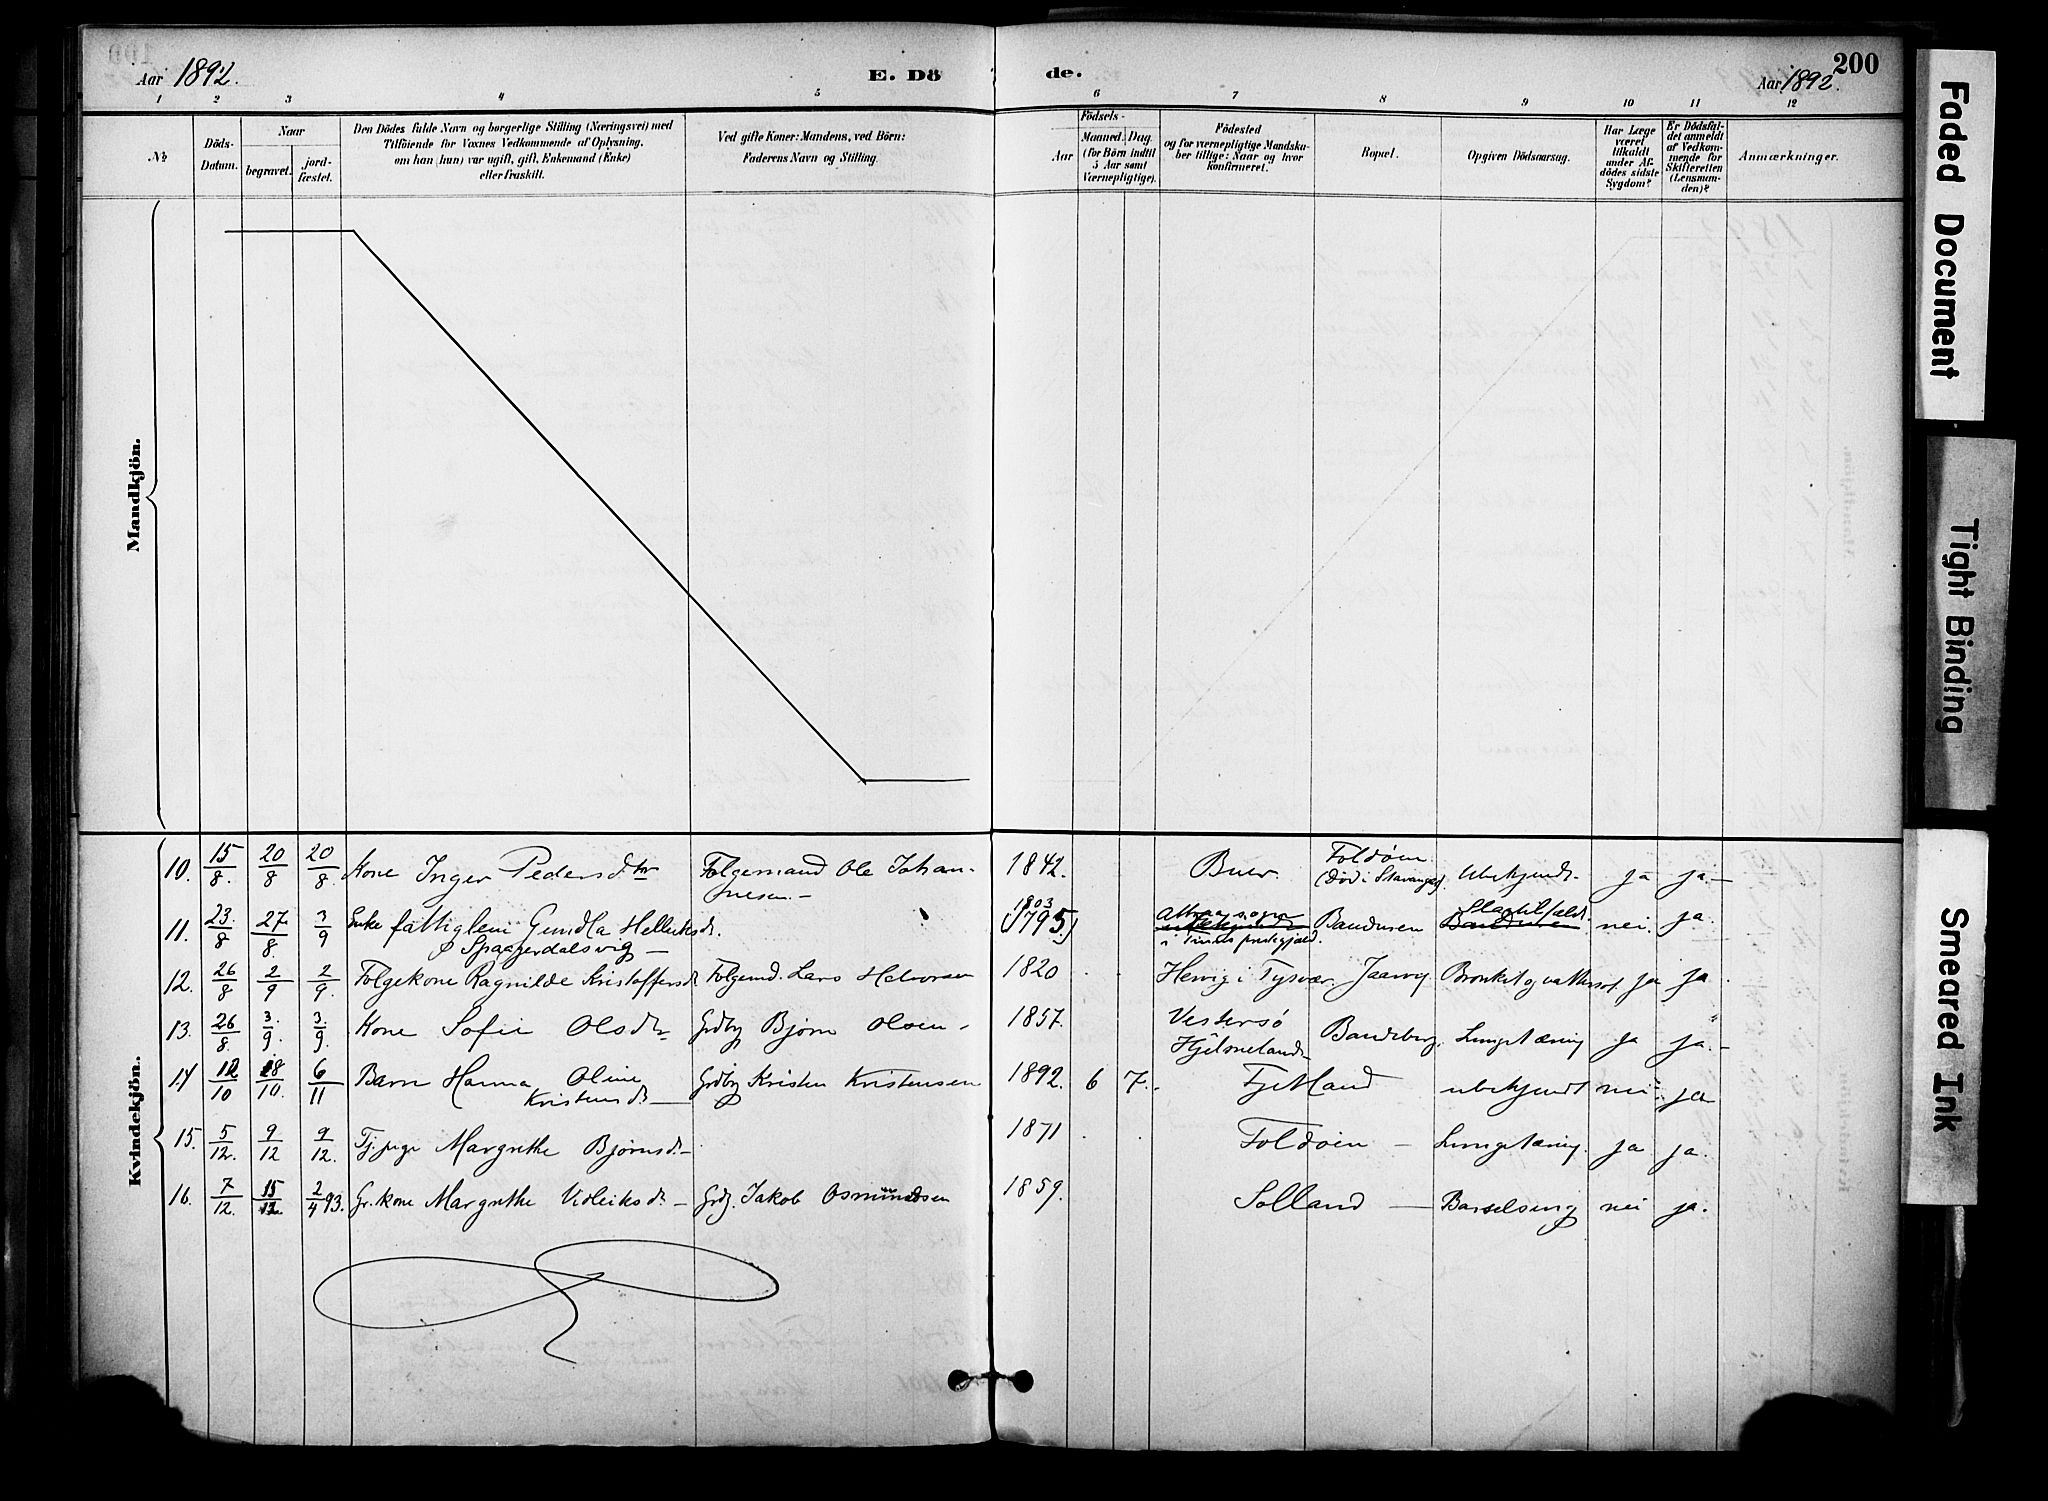 Aar 1892.
E. Dö
de.
200
Aar 1892.
1 2 3 4 5 6 7 8 9 10 11 12
No
Döds-
Datum.
Naar
begravet.
jord-
fæstet.
Den Dödes fulde Navn og borgerlige Stilling (Næringsvei) med
Tilföiende for Voxnes Vedkommende af Oplysning.
om han (hun) var ugift, gift, Enkemand (Enke)
eller fraskilt.
Ved gifte Koner: Mandens, ved Börn:
Faderens Navn og Stilling.
Födsels-
Aar
Maaned.
Dag.
(for Börn indtil
5 Aar samt
Værnepligtige).
Födested
og for værnepligtige Mandska-
ber tillige: Naar og hvor
konfirmeret.
Bopæl.
Opgiven Dödsaarsag.
Har Læge
været
tilkaldt
under Af-
dödes sidste
Sygdom?
Er Dödsfal-
det anmeldt
af Vedkom-
mende for
Skifteretten
(Lensman-
den)?
Anmærkninger.
Mandkjön.
Kvindekjön.
10. 15/8. 20/8 20/8. Kone Inger Pedersdtr Folgemand Ole Johan-
nesen 1842. Buer. Foldøen
(død i Stavanger). Ubekjendt. ja ja.
11. 23/8 27/8. 3/9 Enke fattiglem Gundla Helliksd.
1803
(1795) i Tinns prestegjæld. Bandusen Slagtilfæld. nei. ja.
12. 26/8 2/9 2/9. Folgekone Ragnilde Kristoffersd. Folgemd. Lars Halvorsen 1820 Hervig i Tysvær. Jaarvig. ja ja
13. 26/8. 3/9. 3/9. Kone Sofie Olsdr Grdbr Bjørn Olsen 1857. Vestersø
Hjelmeland Bandeberg. Lungetæring ja ja.
14 12/10 18/10. 6/11 Barn Hanna Oline
Kristensd. Grdbr Kristen Kristensen 1892. 6 7. Fjetland ubekjendt nei ja
15. 5/12. 9/12 9/12. Tj.pige Margrethe Bjørnsd. 1871 Foldøen Lungetæring. ja ja.
16. 7/12. 15/12 2/4 93. Gr.kone Margrethe Vidleiksd. Grdb. Jakob Osmundsen 1859. Solland Barselseng nei ja.
Faded Document
Tight Binding
Smeared Ink